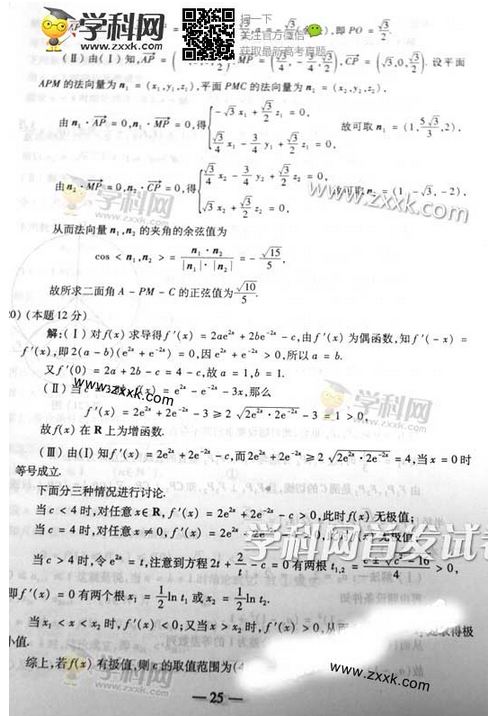 学科网
www.zxxk.com
扫一下
关注官方微信
获取最新高考真题
,即 PO = √3/2.
(Ⅱ)由(Ⅰ)知,AP =
MP =
CP = (√3,0,√3/2). 设平面
APM 的法向量为 n₁ = (x₁,y₁,z₁),平面 PMC 的法向量为 n₂ = (x₂,y₂,z₂),
由 n₁ · AP = 0,n₁ · MP = 0,得 { -√3 x₁ + √3/2 z₁ = 0, √3/4 x₁ - 3/4 y₁ + √3/2 z₁ = 0. 故可取 n₁ = (1, 5√3/3, 2),
由 n₂ · MP = 0,n₂ · CP = 0,得 { √3/4 x₂ - 3/4 y₂ + √3/2 z₂ = 0, √3 x₂ + √3/2 z₂ = 0. 故可取 n₂ = (1, -√3, -2),
www.zxxk.com
学科网
从而法向量 n₁,n₂ 的夹角的余弦值为
cos < n₁,n₂ > = n₁ · n₂ / |n₁| · |n₂| = - √15/5.
故所求二面角 A - PM - C 的正弦值为 √10/5.
20) (本题12分)
学科网
解:(Ⅰ)对f(x)求导得f′(x) = 2ae²ˣ + 2be⁻²ˣ - c,由f′(x)为偶函数,知f′(-x) =
f′(x),即2(a - b)(e²ˣ + e⁻²ˣ) = 0,因e²ˣ + e⁻²ˣ > 0,所以 a = b.
又f′(0) = 2a + 2b - c = 4 - c,故 a = 1,b = 1.
(Ⅱ)当 c = 3 时,f(x) = e²ˣ - e⁻²ˣ - 3x,那么
www.zxxk.com
学科网
f′(x) = 2e²ˣ + 2e⁻²ˣ - 3 ≥ 2√(2e²ˣ · 2e⁻²ˣ) - 3 = 1 > 0,
故f(x)在 R 上为增函数.
(Ⅲ)由(Ⅰ)知f′(x) = 2e²ˣ + 2e⁻²ˣ - c,而2e²ˣ + 2e⁻²ˣ ≥ 2√(2e²ˣ · 2e⁻²ˣ) = 4,当 x = 0 时
等号成立.
下面分三种情况进行讨论.
当 c < 4 时,对任意 x∈R,f′(x) = 2e²ˣ + 2e⁻²ˣ - c > 0,此时f(x)无极值;
当 c = 4 时,对任意 x ≠ 0,f′(x) = 2e²ˣ + 2e⁻²ˣ
学科网首发试卷
当 c > 4 时,令 e²ˣ = t,注意到方程2t + 2/t - c = 0 有两根 t₁,₂ = c ± √(c² - 16) / 4 > 0,
即f′(x) = 0 有两个根 x₁ = 1/2 ln t₁ 或 x₂ = 1/2 ln t₂.
当 x₁ < x < x₂ 时,f′(x) < 0;又当 x > x₂ 时,f′(x) > 0,从而 处取得极
小值.
综上,若f(x)有极值,则 c 的取值范围为(
www.zxxk.com
— 25 —